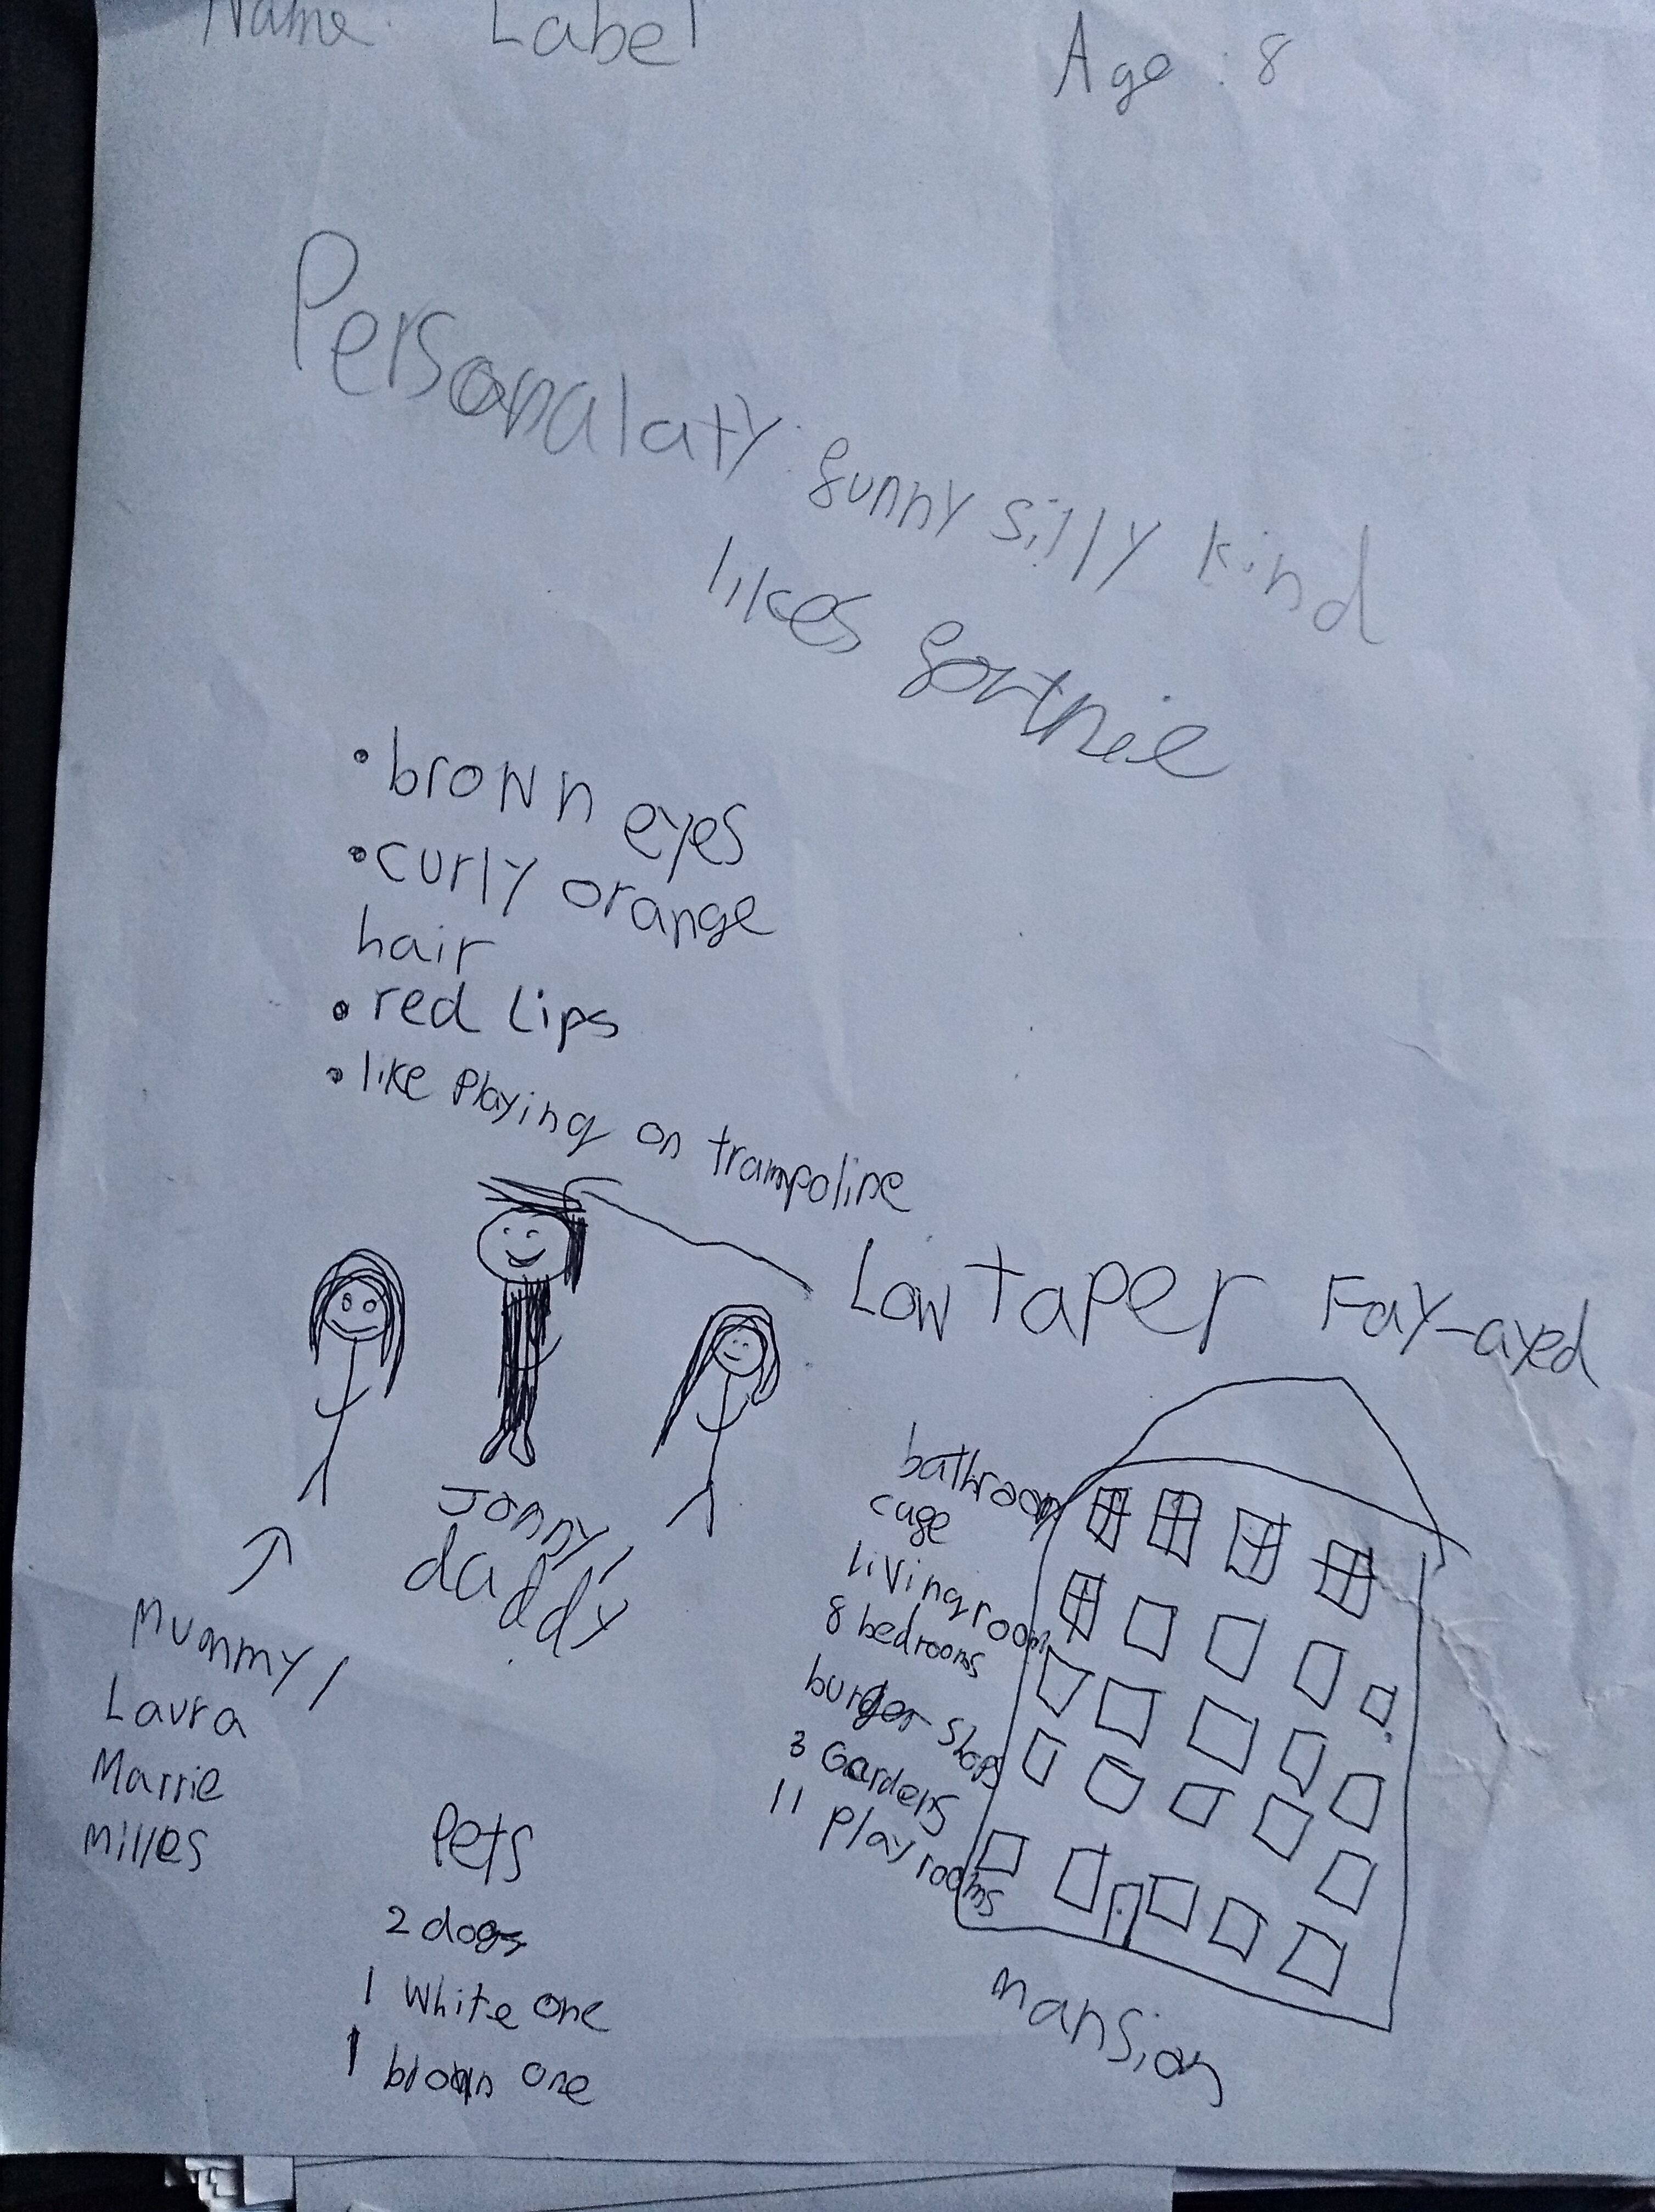 Name: Label Age: 8
Personalaty: funny silly kind
likes fortnie
• brown eyes
• curly orange
hair
• red lips
• like Playing on trampoline
Low taper Fay-ayed
Jonny/
daddy
Mummy/
Laura
Marrie
Milles
Pets
2 dogs
1 White one
1 brown one
bathroom
cage
livingroom
8 bedrooms
burger shops
3 Gardens
11 play rooms
mansion